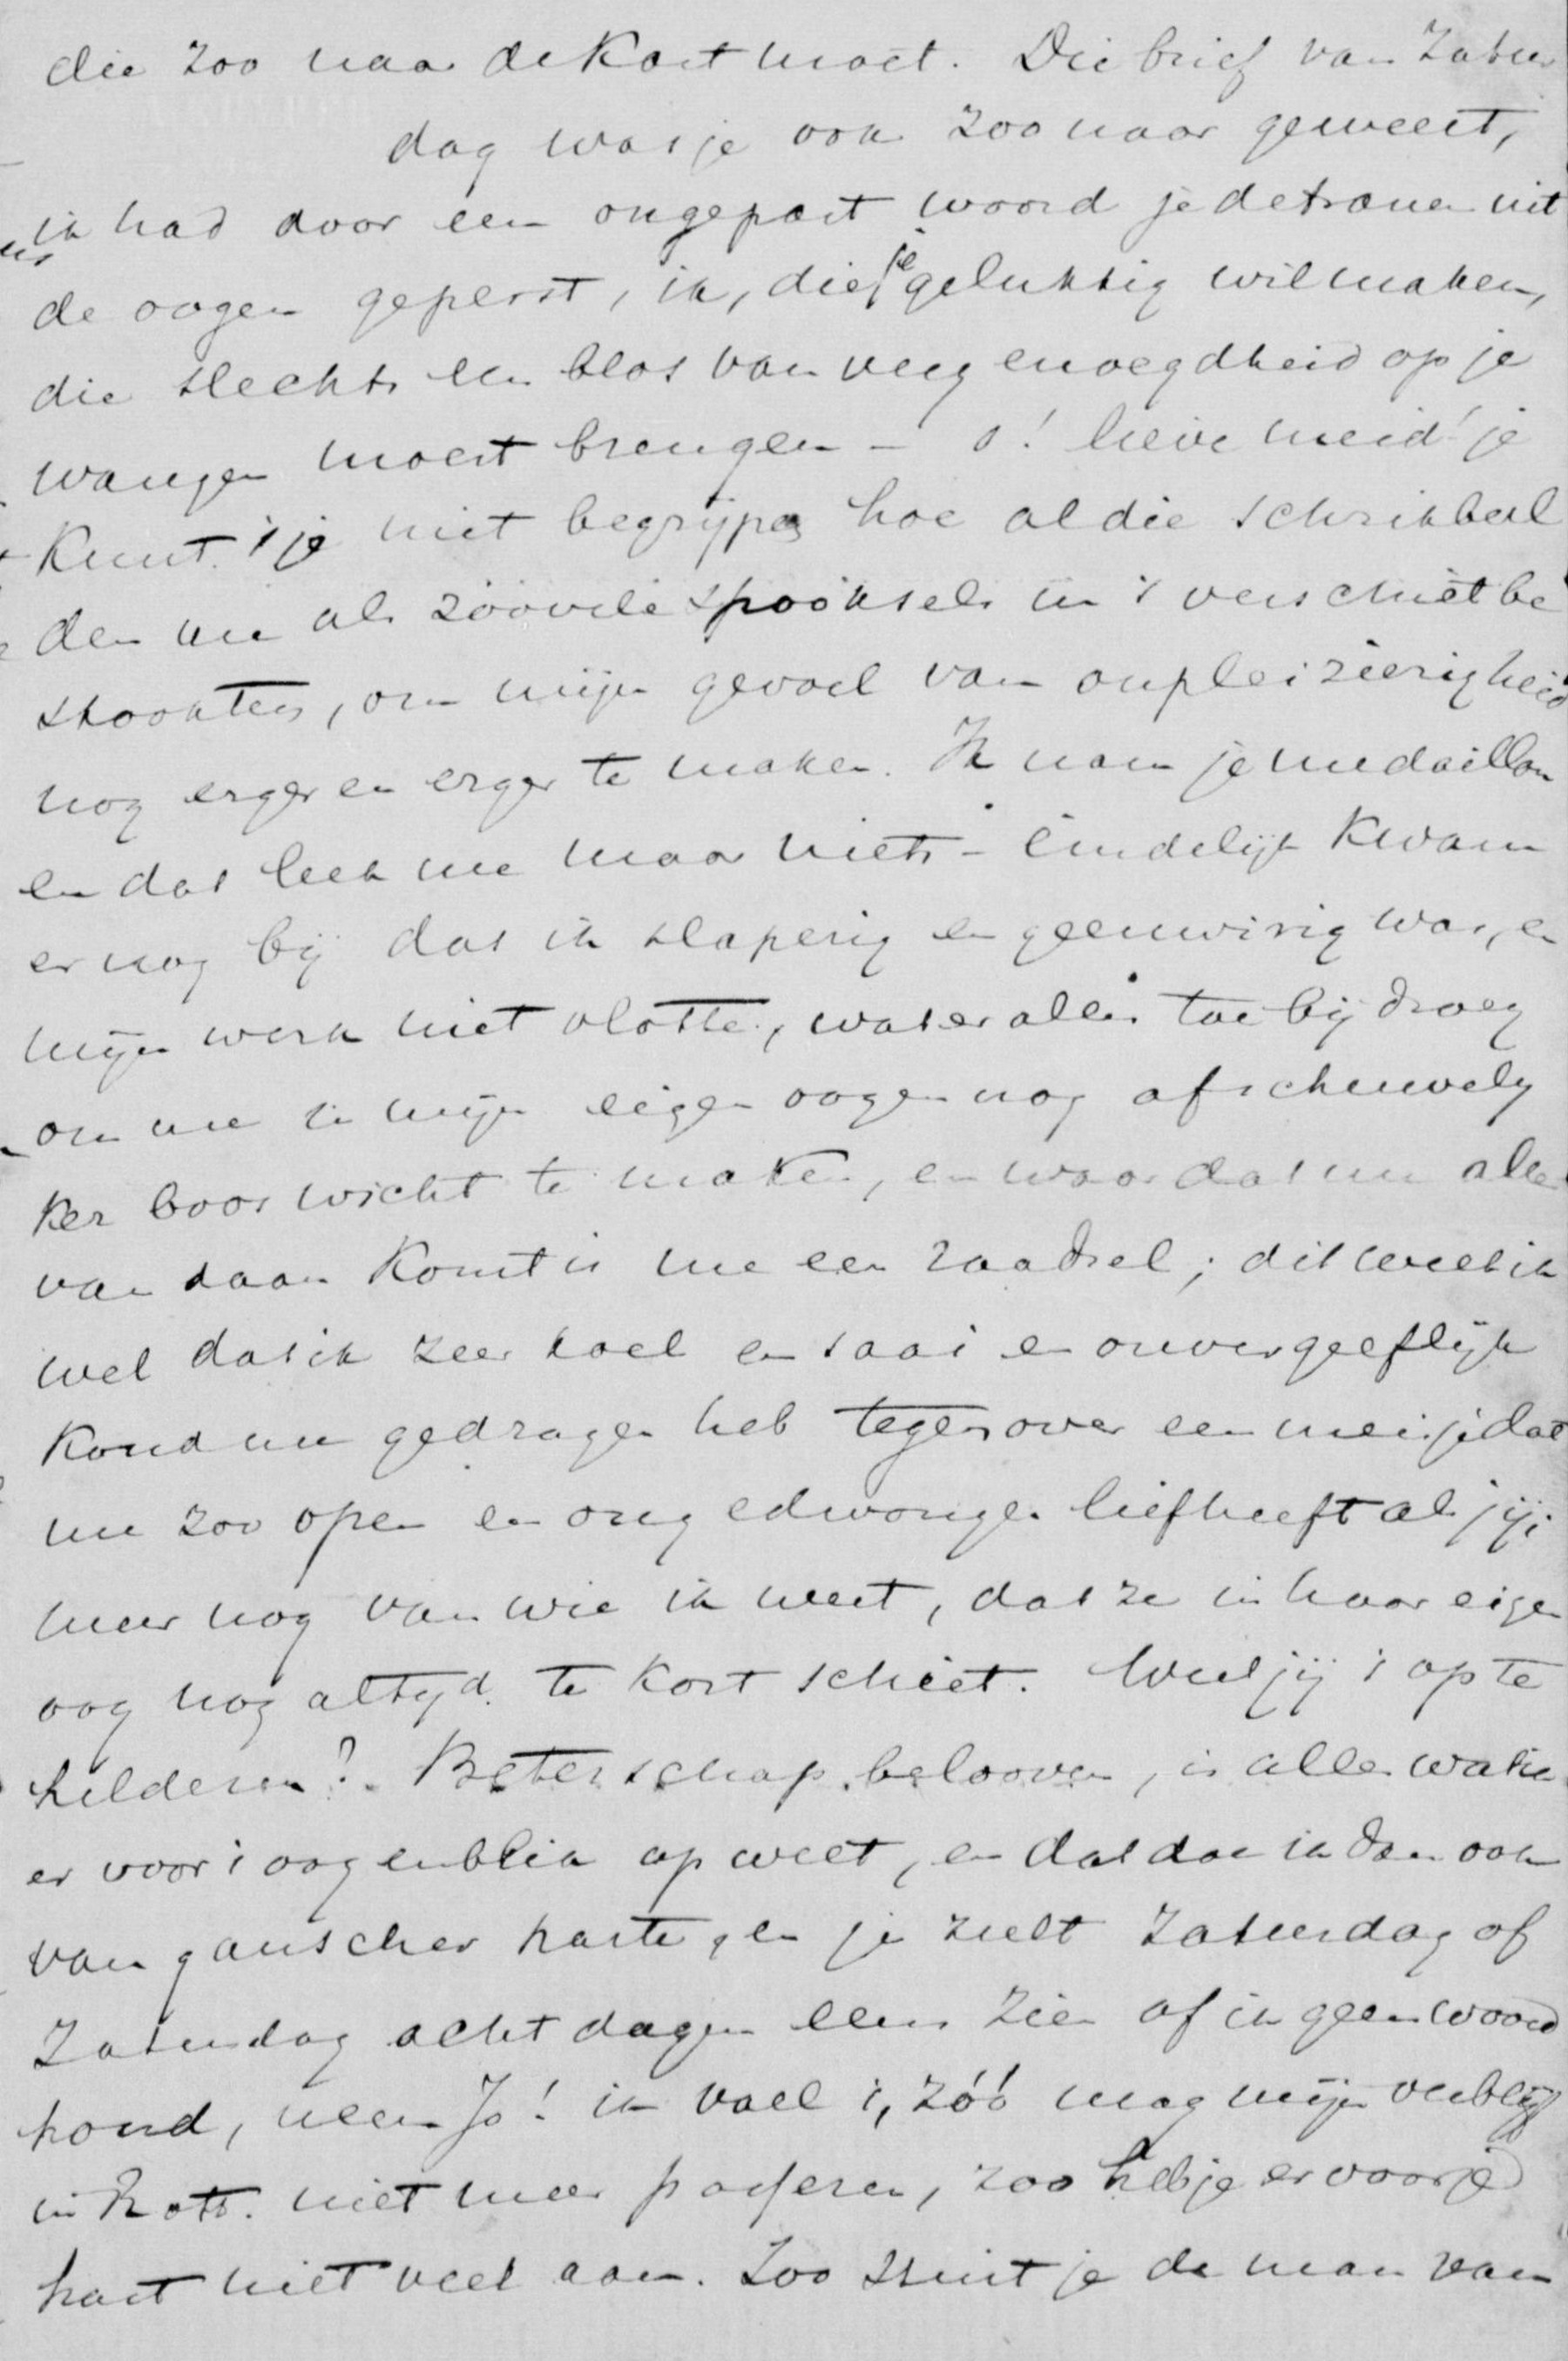 die zoo naar de Kast moet. Die brief van Zatur
dag was je ook zoo naar geweest,
ik had door een ongepast woord je de tranen uit
de oogen geperst, ik, die je gelukkig wil maken,
die slechts een blos van vergenoegdheid op je
wangen moest brengen - o! lieve meid! je
Kunt 't je niet begrijpen hoe al die schrikbeel
den me als zóóvele spooksels in 't verschiet be
stookten, om mijn gevoel van onpleizierigheid
nog erger en erger te maken. Ik nam je medaillon
en dat leek me maar niets - Eindelijk Kwam
er nog bij dat ik slaperig en geeuwerig was, en
mijn werk niet vlotte, wat er alles toe bijdroeg
om me in mijn eigen oogen nog afschuwely
ker booswicht te maken, en waar dat nu alles
van daan Komt is me een raadsel; dit weet ik
wel dat ik zeer koel en saai en onvergeeflijk
Koud me gedragen heb tegenover een meisje dat
me zoo open en ongedwongen liefheeft als jij;
meer nog van wie ik weet, dat ze in haar eigen
oog nog altyd te Kort schiet. Weet jij 't op te
helderen? Beterschap beloven, is alles wat ik
er voor 't oogenblik op weet, en dat doe ik dan ook
van ganscher harte, en je zult Zaturdag of
Zaturdag acht dagen eens zien of ik geen woord
houd, neen Jo! ik voel 't, zóó mag mijn verblijf
in Rott. niet meer passeren, zoo heb je er voor je
hart niet veel aan. Zoo stuit je de man van